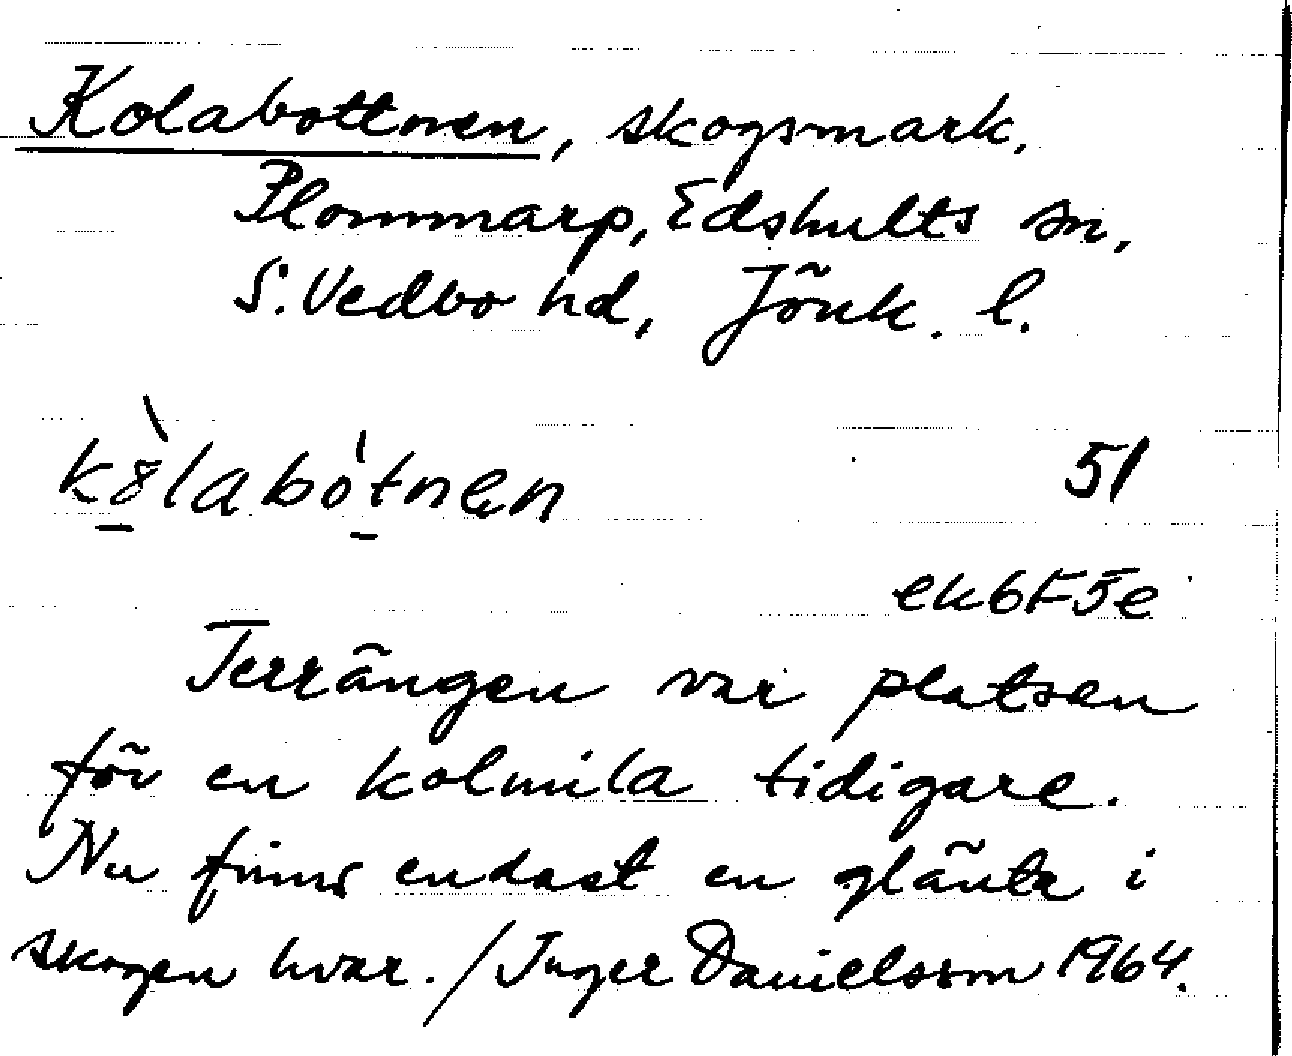 Kolabottnen, skogsmark,
Plommarp, Edshults sn,
S. Vedbo hd, Jönk. l.
51
ek6F5e
Terrängen var platsen
för en kolmila tidigare.
Nu finns endast en glänta i
skogen kvar. / Inger Danielsson 1964.